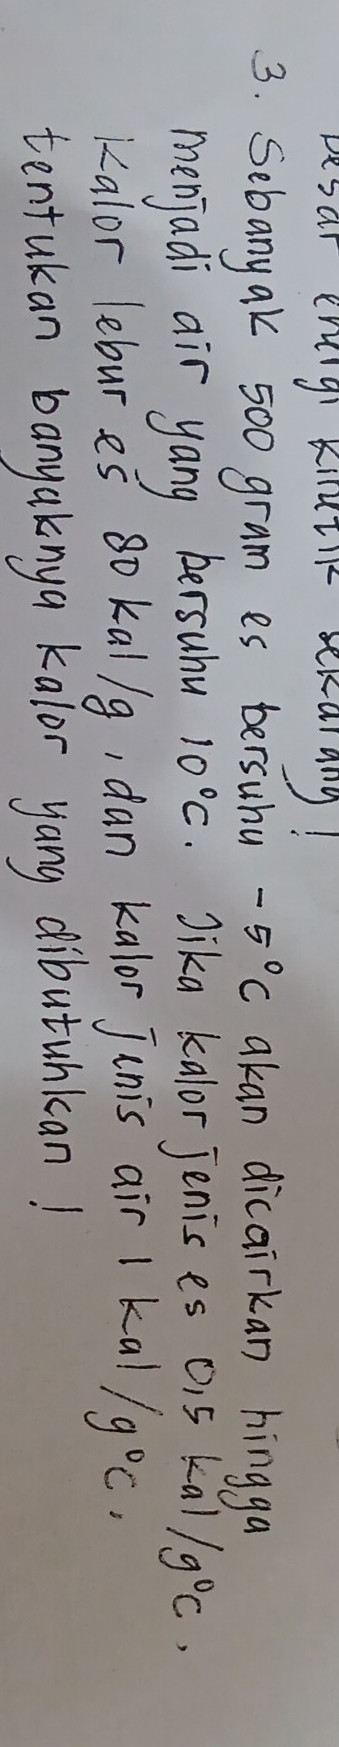 besar energi kinetik sekarang!
3. Sebanyak 500 gram es bersuhu -5°C akan dicairkan hingga
menjadi air yang bersuhu 10°C. Jika kalor jenis es 0,5 kal/g°C,
kalor lebur es 80 kal/g, dan kalor jenis air 1 kal/g°C,
tentukan banyaknya kalor yang dibutuhkan!